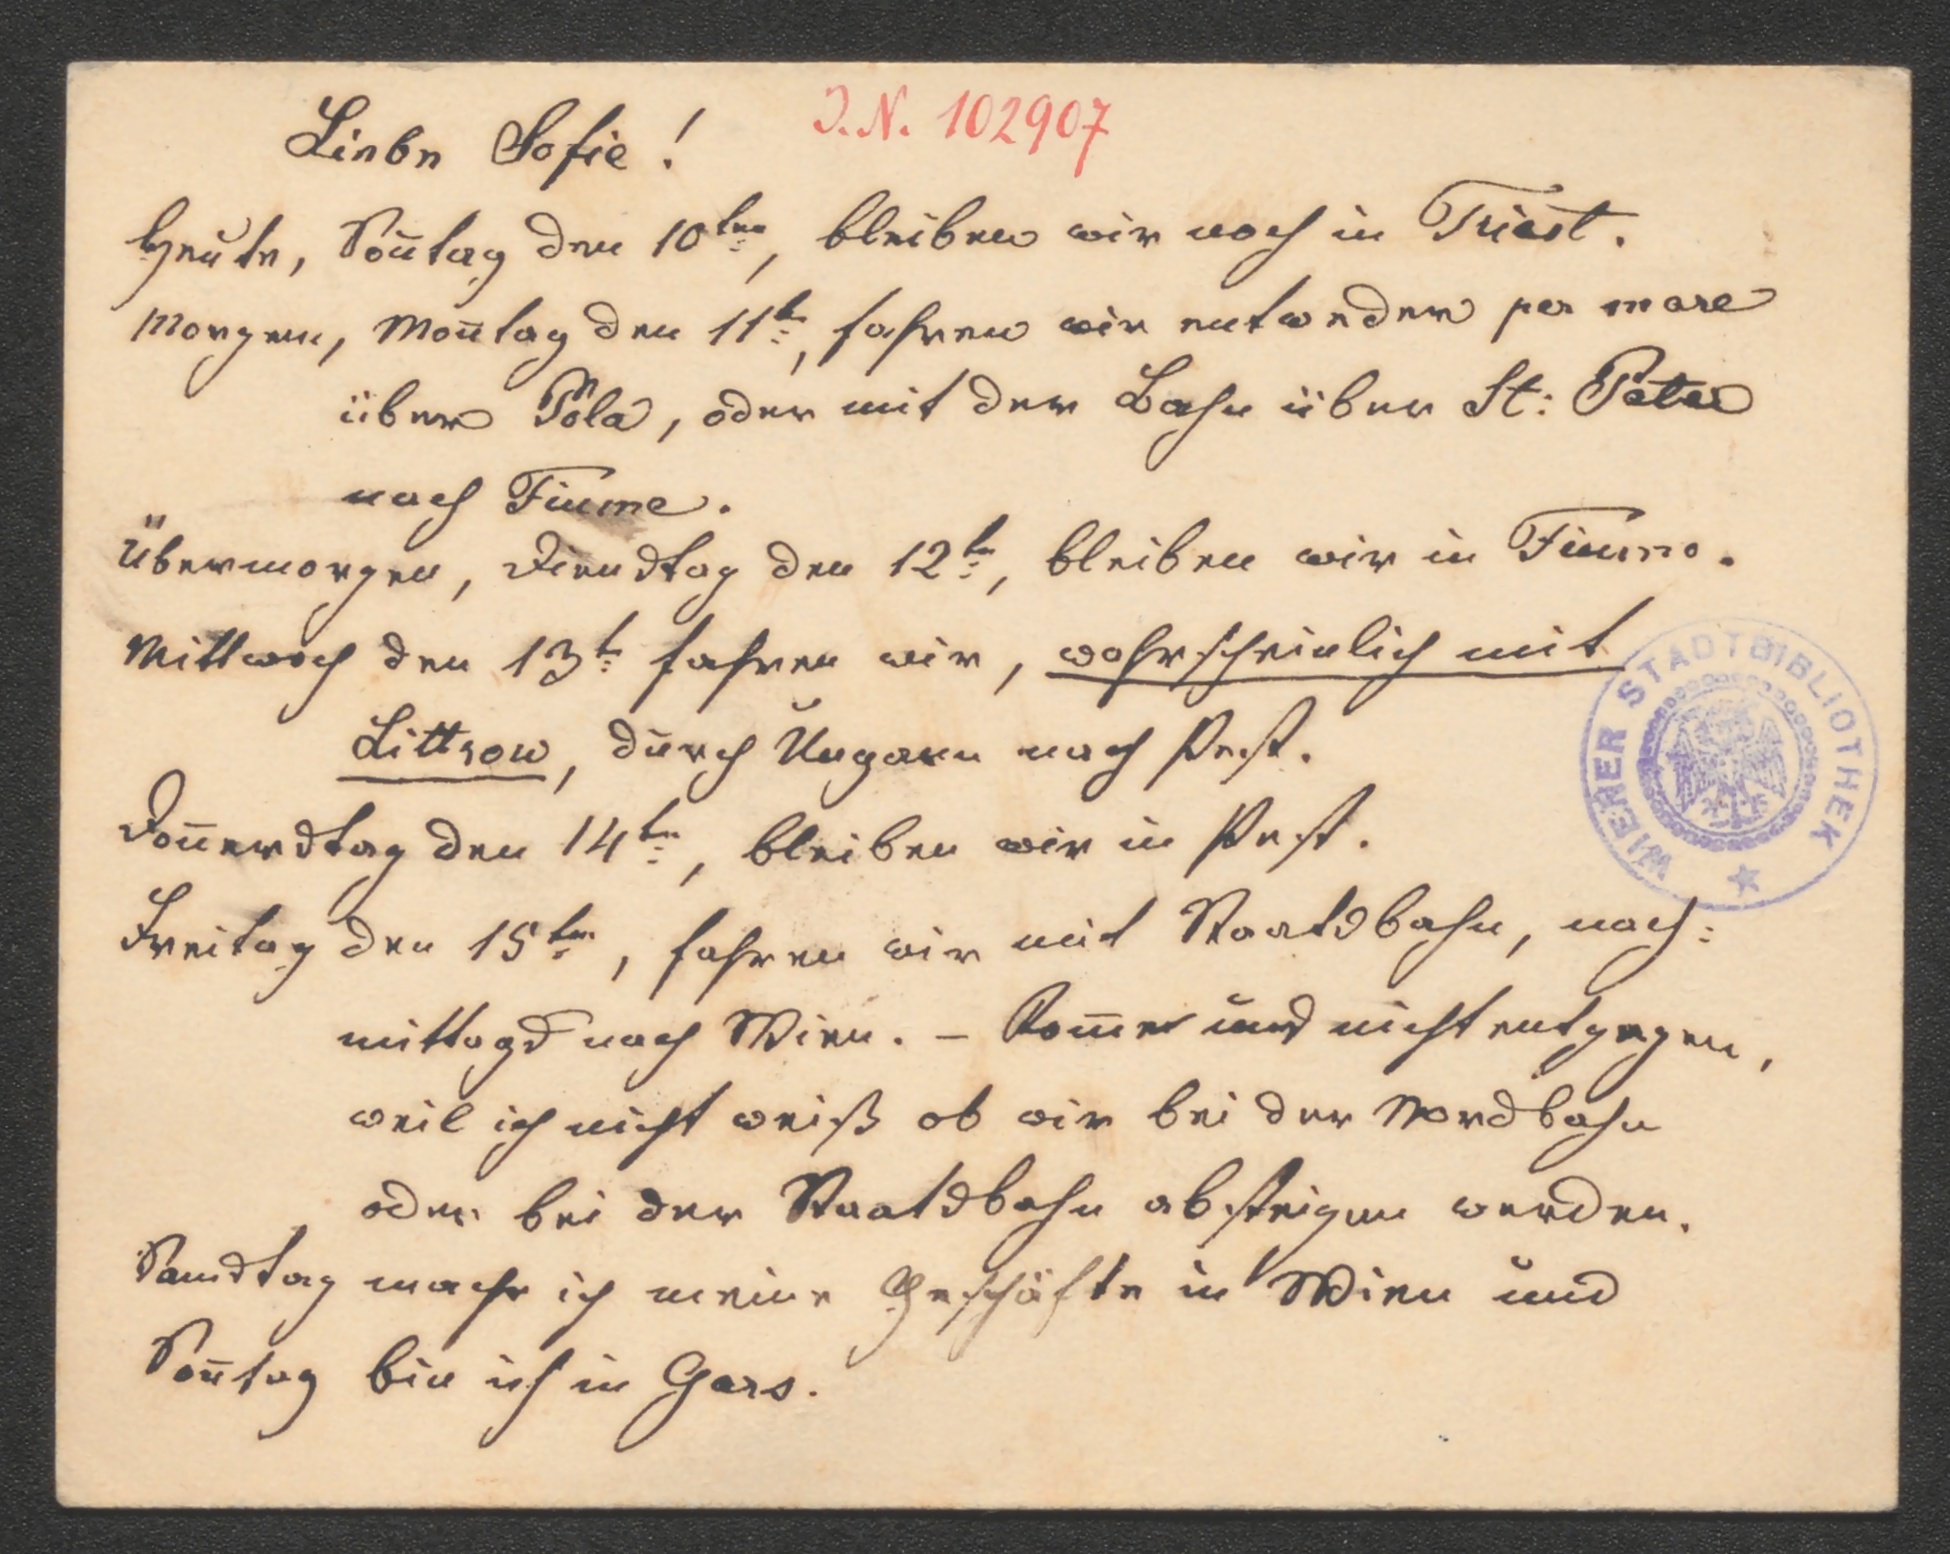 Liebe Sofie!
J. N. 102907
Heute, Soñtag den 10ten, bleiben wir noch in Triest.
Morgen, Moñtag den 11t, fahren wir entweder per mare
über Pola, oder mit der Bahn über St: Peter
nach Fiume.
Übermorgen, Dienstag den 12t, bleiben wir in Fiume.
Mittwoch den 13t fahren wir, wahrscheinlich mit
Littrow, durch Ungarn nach Pest.
Doñerstag den 14ten, bleiben wir in Pest.
Freitag den 15ten, fahren wir mit Staatsbahn, nach:
mittags nach Wien. – Kom̄e uns nicht entgegen,
weil ich nicht weiß ob wir bei der Nordbahn
oder bei der Staatsbahn absteigen werden.
Samstag mache ich meine Geschäfte in Wien und
Soñtag bin ich in Gars.
WIENER STADTBIBLIOTHEK